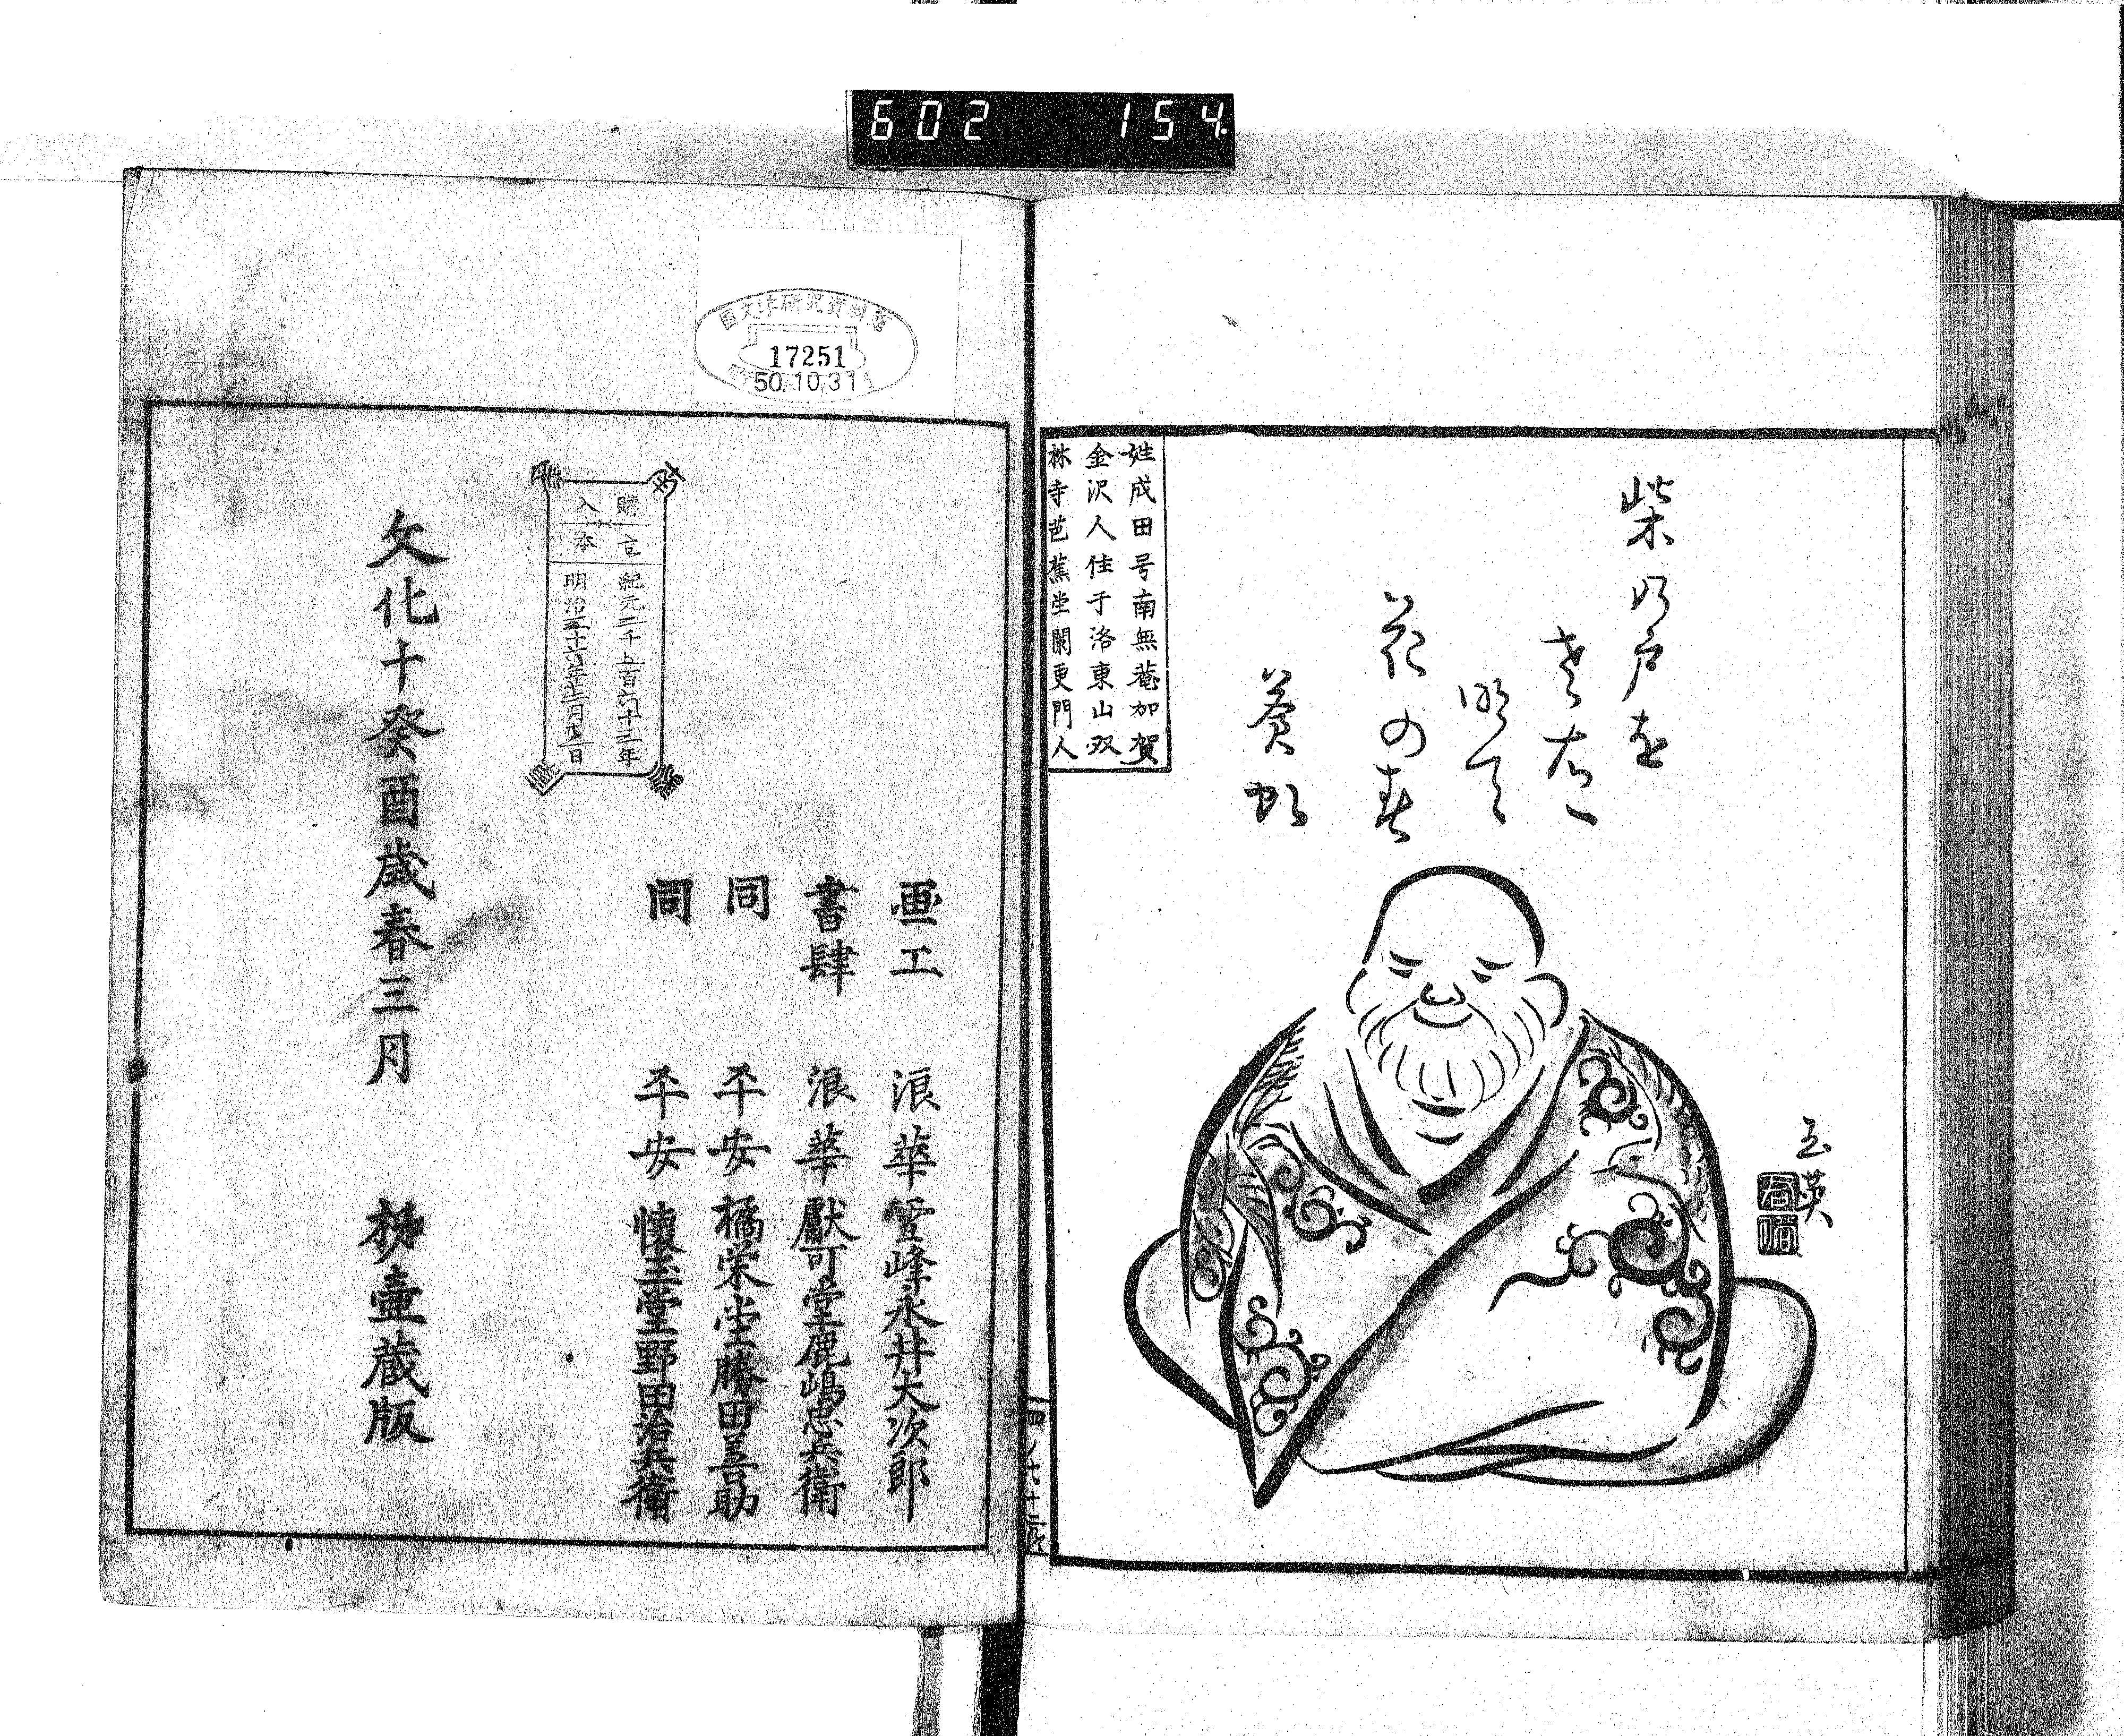 602 154
柴の戸を
左右に
明て
花の春
蒼虬
玉英
姓成田号南無菴加賀
金沢人住于洛東山双
林寺芭蕉堂闌更門人
國文学研究資料館
17251
50.10.31
画工 浪華雪峰永井大次郎
書肆 浪華獻可堂鹿嶋忠兵衛
同 平安橘栄堂勝田善助
同 平安懐玉堂野田治兵衛
購入
紀元二千五百六十三年
文化十癸酉歳春三月
壷蔵版